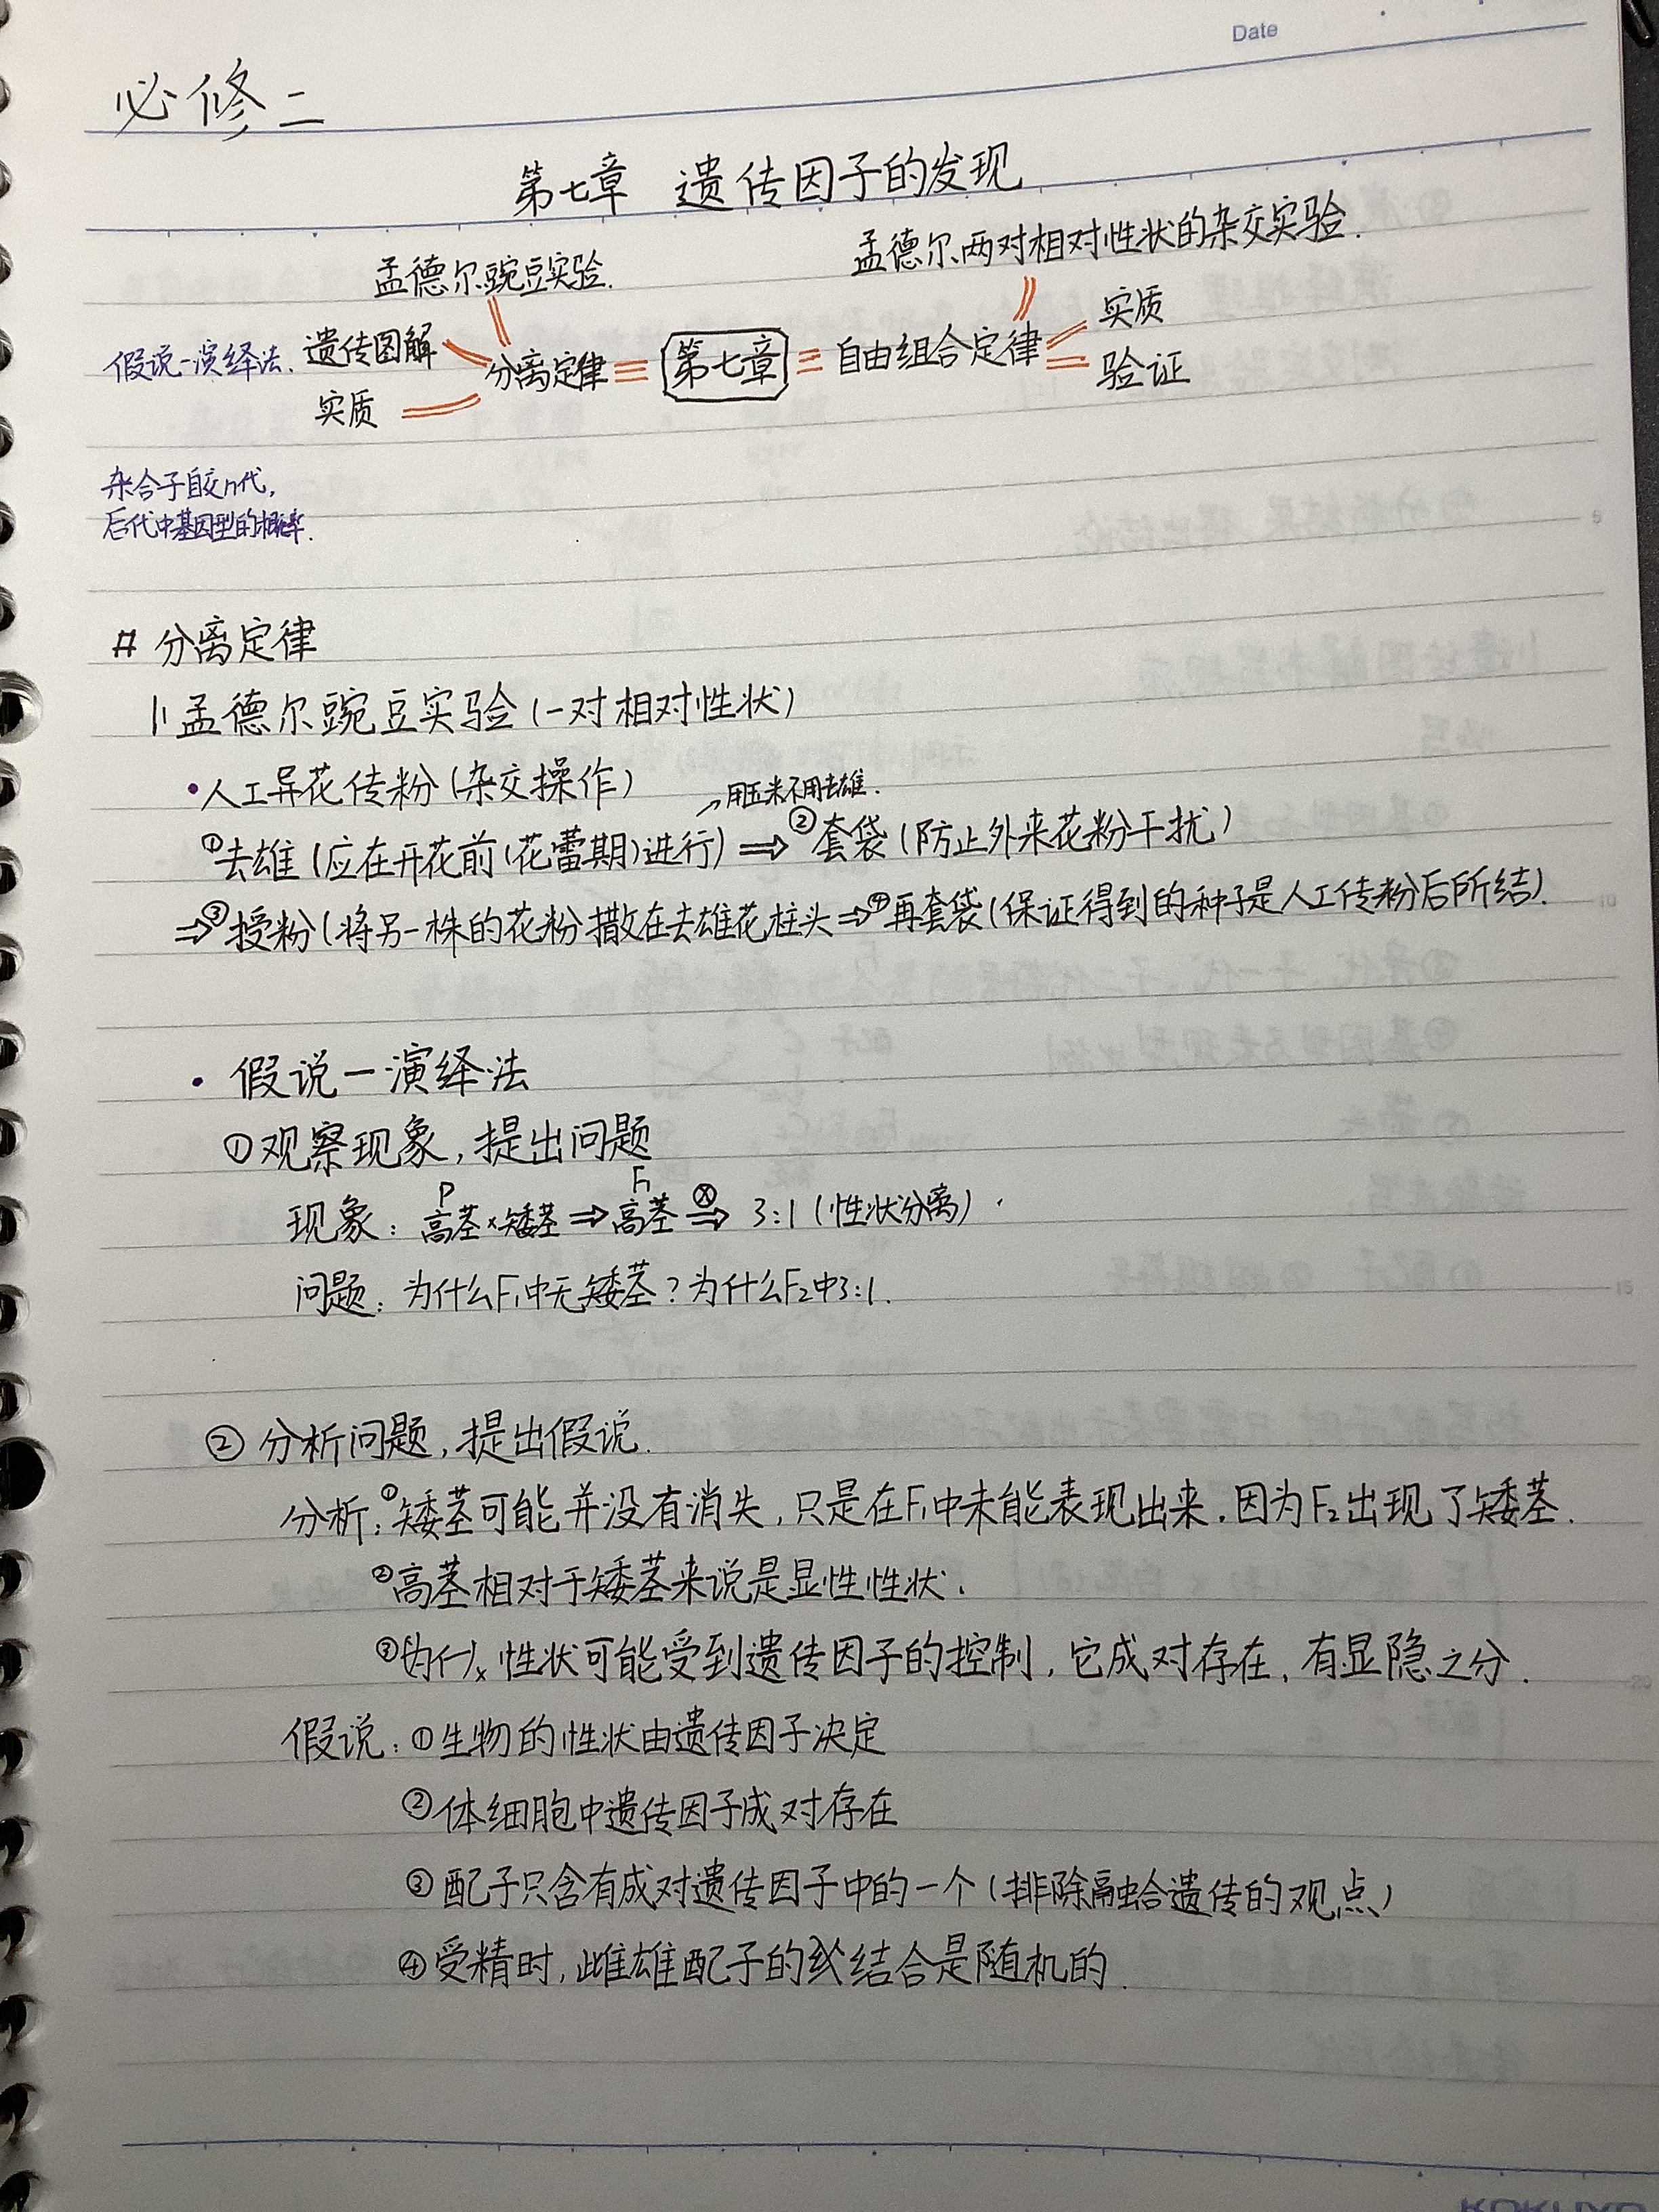 Date
必修二
第七章 遗传因子的发现
孟德尔豌豆实验.
孟德尔两对相对性状的杂交实验.
假说-演绎法. 遗传图解
分离定律
第七章
自由组合定律
实质
验证
实质
杂合子自交n代,
后代中基因型的概率.
# 分离定律
1: 孟德尔豌豆实验 (一对相对性状)
•人工异花传粉 (杂交操作)
用玉米不用去雄.
①去雄 (应在开花前(花蕾期)进行) ⇒ ②套袋 (防止外来花粉干扰)
⇒③授粉 (将另一株的花粉撒在去雄花柱头⇒④再套袋(保证得到的种子是人工传粉后所结).
• 假说一演绎法
①观察现象, 提出问题
P F₁
现象: 高茎×矮茎⇒高茎 ⓧ⇒ 3:1 (性状分离)
问题: 为什么F₁中无矮茎? 为什么F₂中3:1.
② 分析问题, 提出假说.
分析: ①矮茎可能并没有消失, 只是在F₁中未能表现出来. 因为F₂出现了矮茎.
②高茎相对于矮茎来说是显性性状.
③ 性状可能受到遗传因子的控制, 它成对存在, 有显隐之分.
假说: ①生物的性状由遗传因子决定
②体细胞中遗传因子成对存在
③配子只含有成对遗传因子中的一个 (排除融合遗传的观点)
④受精时, 雌雄配子的结合是随机的.
5
10
15
20
KOKUYO